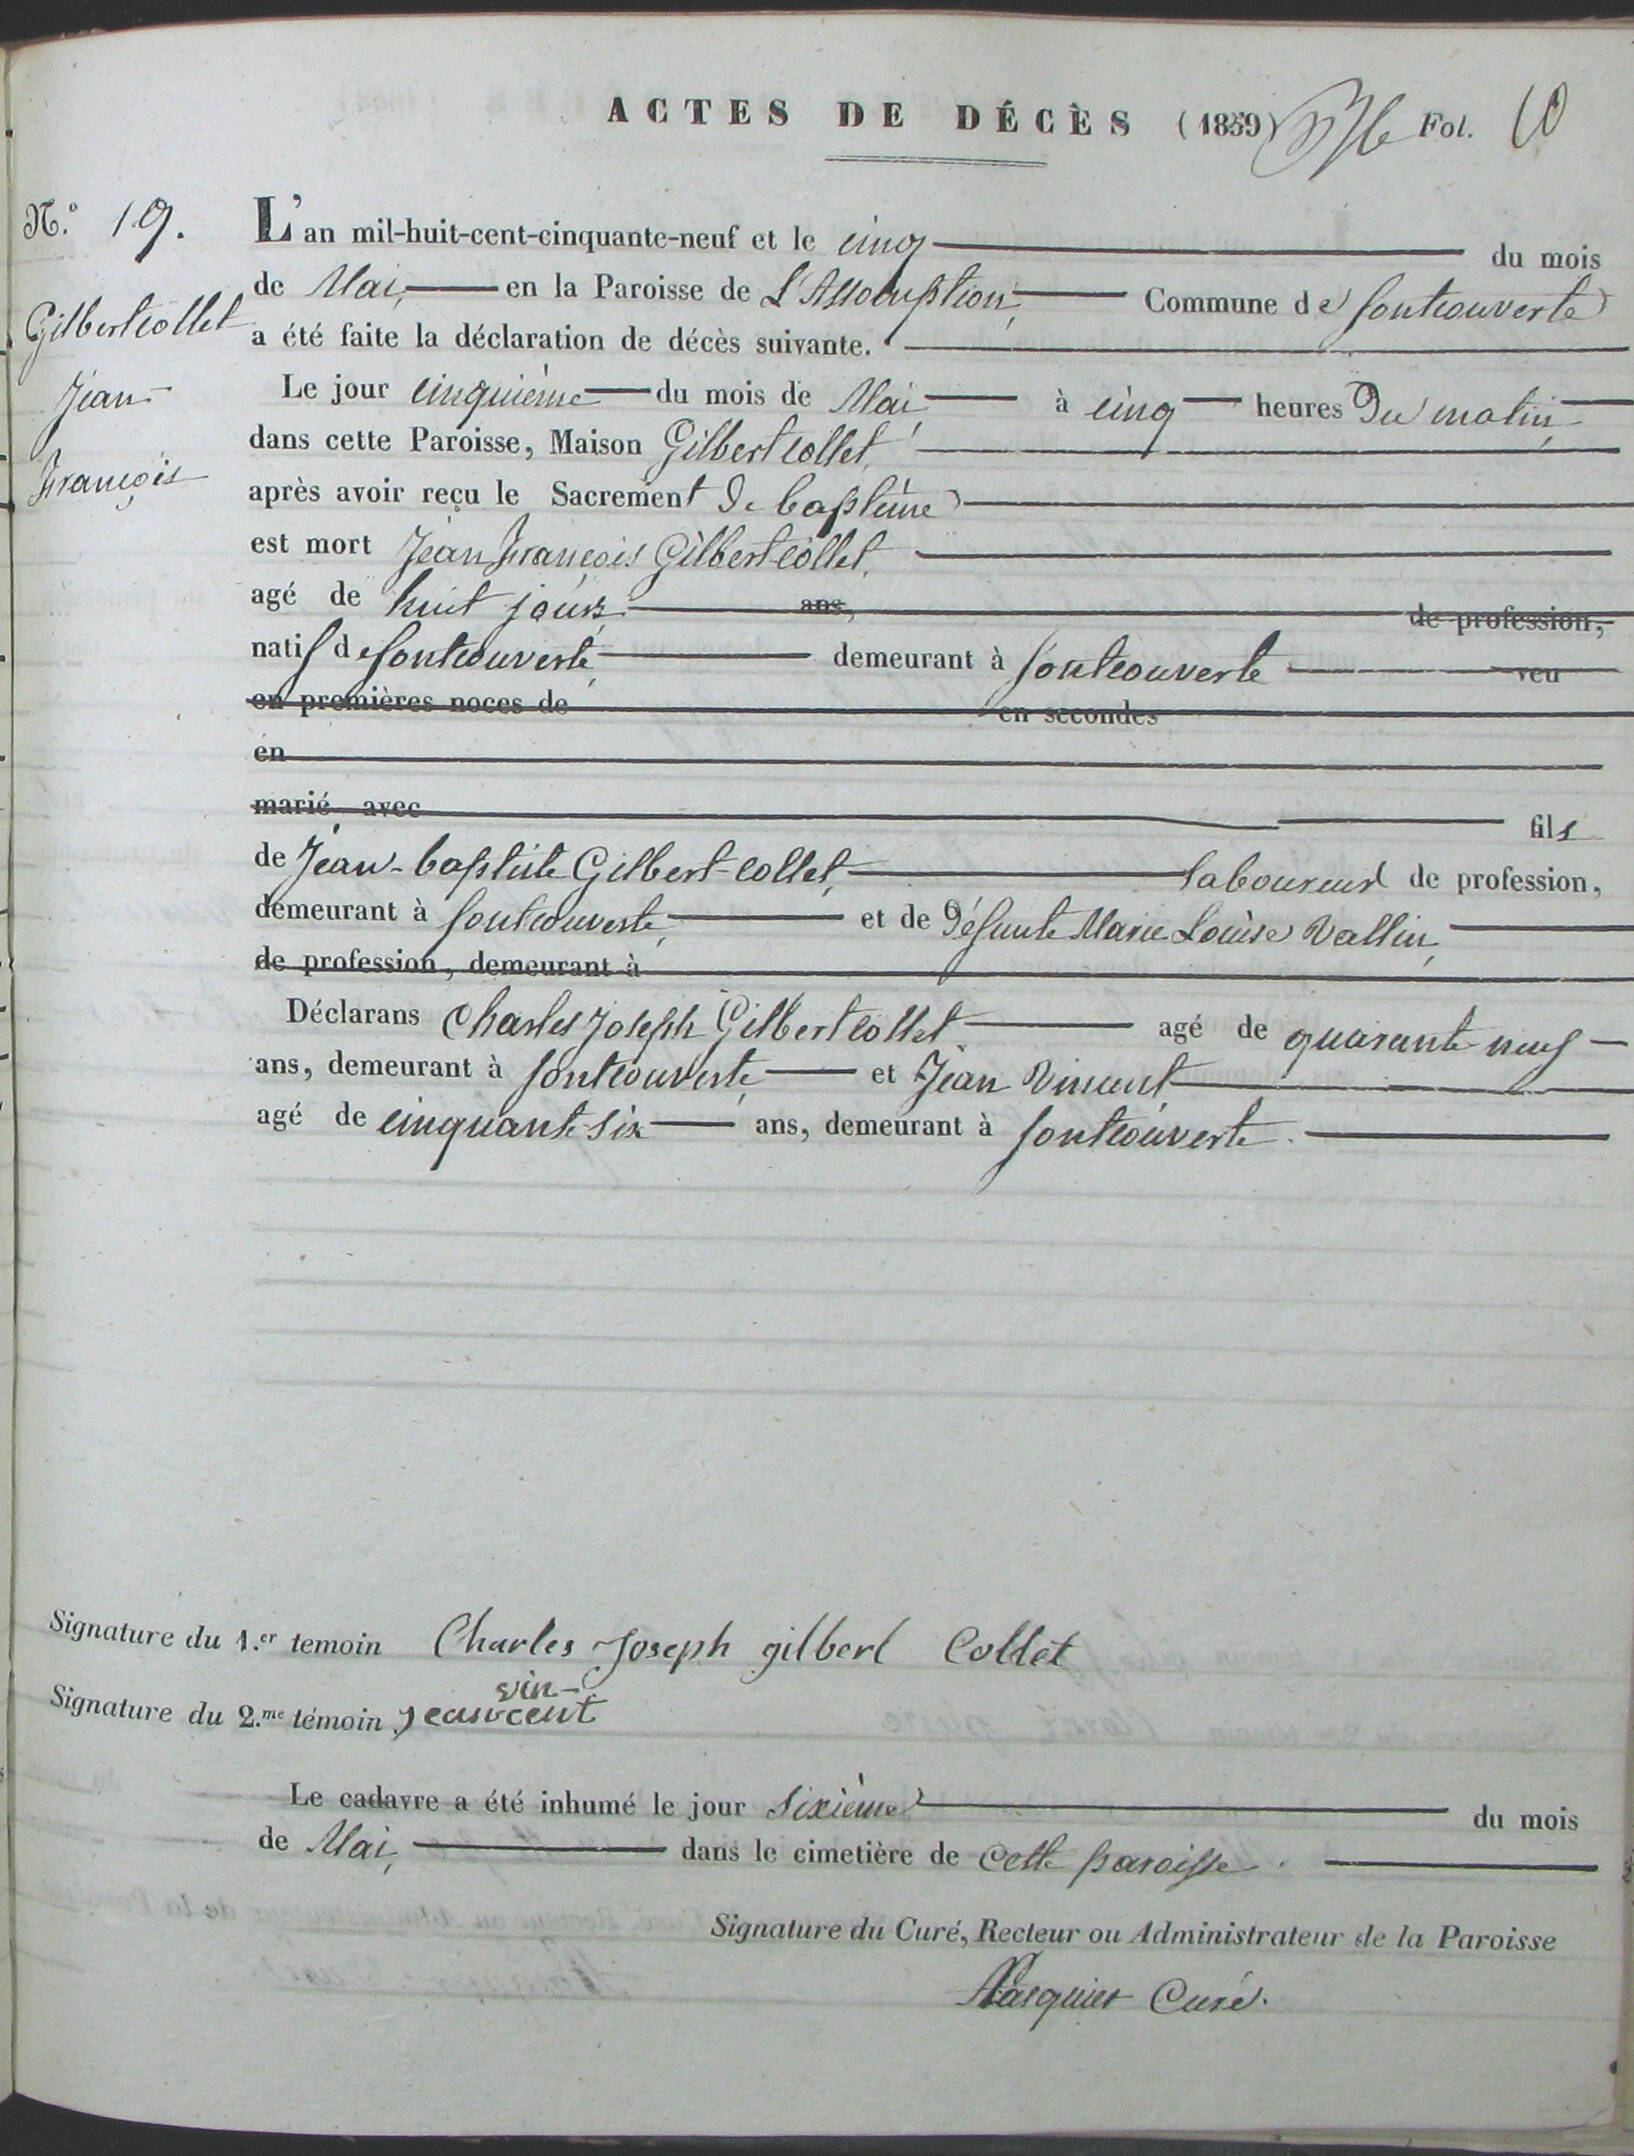 ACTES DE DÉCÈS (1859) Fol. 10
N.o 19.
L'an mil-huit-cent-cinquante-neuf et le cinq du mois
de Mai, en la Paroisse de L'Assomption, Commune de fontcouverte
Gilbert collet
a été faite la déclaration de décès suivante.
Jean
Le jour cinquième du mois de Mai, à cinq heures Du matin,
dans cette Paroisse, Maison Gilbert collet,
François
après avoir reçu le Sacrement De baptême
est mort Jean François Gilbert collet,
agé de huit jours ans, de profession,
natif de fontcouverte, demeurant à fontcouverte veu
en premières noces de en secondes
en
marié avec fils
de Jean-baptiste Gilbert-collet, laboureur de profession,
demeurant à fontcouverte, et de Défunte Marie Louise Vallin,
de profession, demeurant à
Déclarans Charles Joseph Gilbert collet agé de quarante neuf
ans, demeurant à fontcouverte, et Jean Vincent
agé de cinquante-six ans, demeurant à fontcouverte.
Signature du 1.er temoin Charles Joseph gilbert Collet
vin-
Signature du 2.me témoin jean cent
Le cadavre a été inhumé le jour sixième du mois
de Mai, dans le cimetière de cette paroisse.
Signature du Curé, Recteur ou Administrateur de la Paroisse
Pasquier Curé.